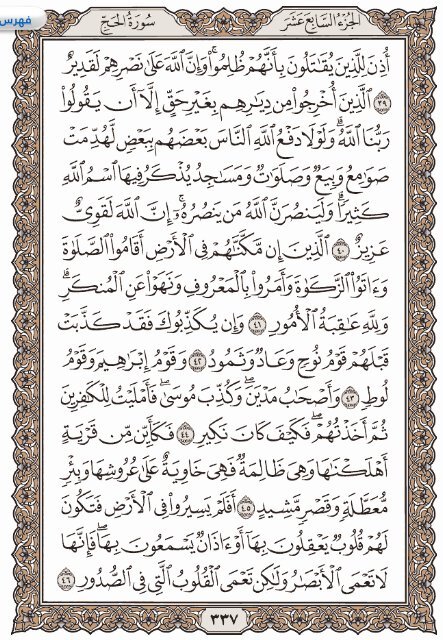 فهرس
الجزء السابع عشر
سورة الحج
أُذِنَ لِلَّذِينَ يُقَٰتَلُونَ بِأَنَّهُمْ ظُلِمُوا۟ ۚ وَإِنَّ ٱللَّهَ عَلَىٰ نَصْرِهِمْ لَقَدِيرٌ
٣٩ ٱلَّذِينَ أُخْرِجُوا۟ مِن دِيَٰرِهِم بِغَيْرِ حَقٍّ إِلَّآ أَن يَقُولُوا۟
رَبُّنَا ٱللَّهُ ۗ وَلَوْلَا دَفْعُ ٱللَّهِ ٱلنَّاسَ بَعْضَهُم بِبَعْضٍ لَّهُدِّمَتْ
صَوَٰمِعُ وَبِيَعٌ وَصَلَوَٰتٌ وَمَسَٰجِدُ يُذْكَرُ فِيهَا ٱسْمُ ٱللَّهِ
كَثِيرًا ۗ وَلَيَنصُرَنَّ ٱللَّهُ مَن يَنصُرُهُۥٓ ۗ إِنَّ ٱللَّهَ لَقَوِىٌّ
عَزِيزٌ ٤٠ ٱلَّذِينَ إِن مَّكَّنَّٰهُمْ فِى ٱلْأَرْضِ أَقَامُوا۟ ٱلصَّلَوٰةَ
وَءَاتَوُا۟ ٱلزَّكَوٰةَ وَأَمَرُوا۟ بِٱلْمَعْرُوفِ وَنَهَوْا۟ عَنِ ٱلْمُنكَرِ ۗ
وَلِلَّهِ عَٰقِبَةُ ٱلْأُمُورِ ٤١ وَإِن يُكَذِّبُوكَ فَقَدْ كَذَّبَتْ
قَبْلَهُمْ قَوْمُ نُوحٍ وَعَادٌ وَثَمُودُ ٤٢ وَقَوْمُ إِبْرَٰهِيمَ وَقَوْمُ
لُوطٍ ٤٣ وَأَصْحَٰبُ مَدْيَنَ ۖ وَكُذِّبَ مُوسَىٰ فَأَمْلَيْتُ لِلْكَٰفِرِينَ
ثُمَّ أَخَذْتُهُمْ ۖ فَكَيْفَ كَانَ نَكِيرِ ٤٤ فَكَأَيِّن مِّن قَرْيَةٍ
أَهْلَكْنَٰهَا وَهِىَ ظَالِمَةٌ فَهِىَ خَاوِيَةٌ عَلَىٰ عُرُوشِهَا وَبِئْرٍ
مُّعَطَّلَةٍ وَقَصْرٍ مَّشِيدٍ ٤٥ أَفَلَمْ يَسِيرُوا۟ فِى ٱلْأَرْضِ فَتَكُونَ
لَهُمْ قُلُوبٌ يَعْقِلُونَ بِهَآ أَوْ ءَاذَانٌ يَسْمَعُونَ بِهَا ۖ فَإِنَّهَا
لَا تَعْمَى ٱلْأَبْصَٰرُ وَلَٰكِن تَعْمَى ٱلْقُلُوبُ ٱلَّتِى فِى ٱلصُّدُورِ ٤٦
٣٣٧